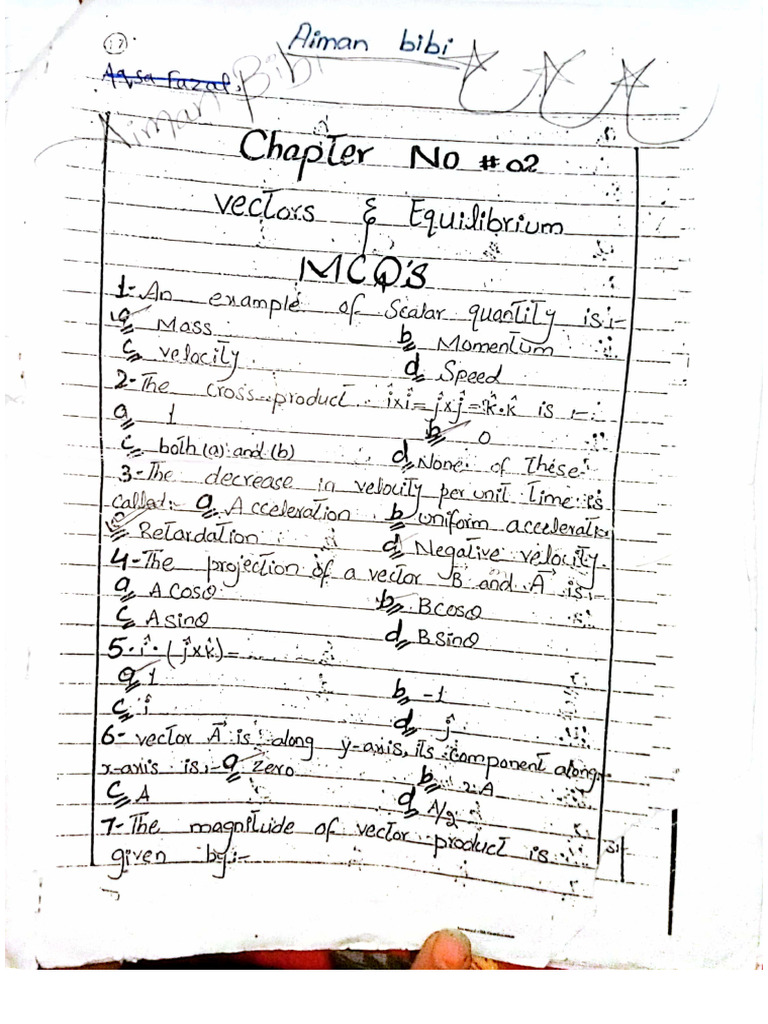 17
Aiman bibi
Aqsa Fazal,
Aiman Bibi
Chapter No # 02
Vectors & Equilibrium
MCQ'S
1- An example of Scalar quantity is:-
a Mass b Momentum
c velocity d Speed
2- The cross product î×î = ĵ×ĵ = k̂•k̂ is :-
a 1 b 0
c both (a) and (b) d None of These
3- The decrease in velocity per unit Time is
called:- a Acceleration b uniform acceleratn
c Retardation d Negative velocity.
4- The projection of a vector B and A⃗ is:-
a A Cosθ b B cosθ
c A sinθ d B sinθ
5. î • (ĵ×k̂) = ........
a 1 b -1
c î d ĵ
6- vector A⃗ is along y-axis, its component along
x-axis is:- a Zero b 2A
c A d A/2
7- The magnitude of vector product is
given by:-